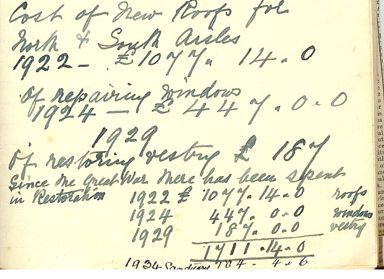 Cost of New Roofs for
North & South Aisles
1922 – £1077. 14. 0
Of repairing windows
1924 – £ 447. 0. 0
1929
Of restoring vestry £ 187
Since the Great War there has been spent
in Restoration 1922 £ 1077. 14. 0 roofs
1924 447. 0. 0 windows
1929 187. 0. 0 vestry
1711. 14. 0
1934 Sanctuary 4. 6